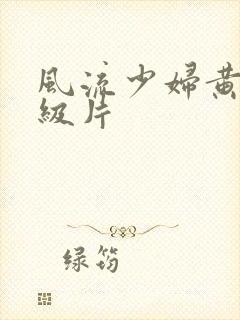 風流少婦黄
級片
绿筠